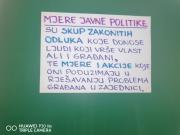 MJERE JAVNE POLITIKE
SU SKUP ZAKONITIH
ODLUKA KOJE DONOSE
LJUDI KOJI VRŠE VLAST
ALI I GRAĐANI,
TE MJERE I AKCIJE KOJE
ONI PODUZIMAJU U
RJEŠAVANJU PROBLEMA
GRAĐANA U ZAJEDNICI.
HUAWEI P30 lite
AI TRIPLE CAMERA